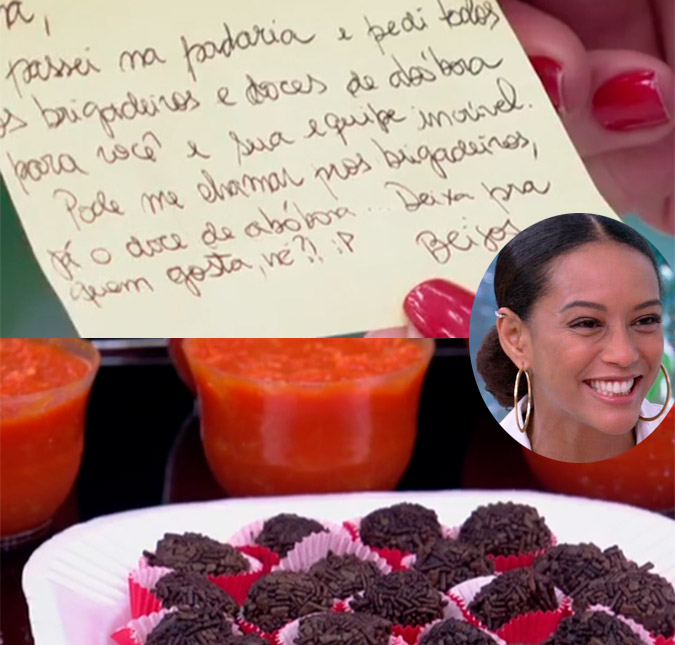 a,
passei na padaria e pedi todos
os brigadeiros e doces de abóbora
para você e sua equipe incrível.
Pode me chamar pros brigadeiros,
já o doce de abóbora... Deixa pra
quem gosta, né?! :P Beijos